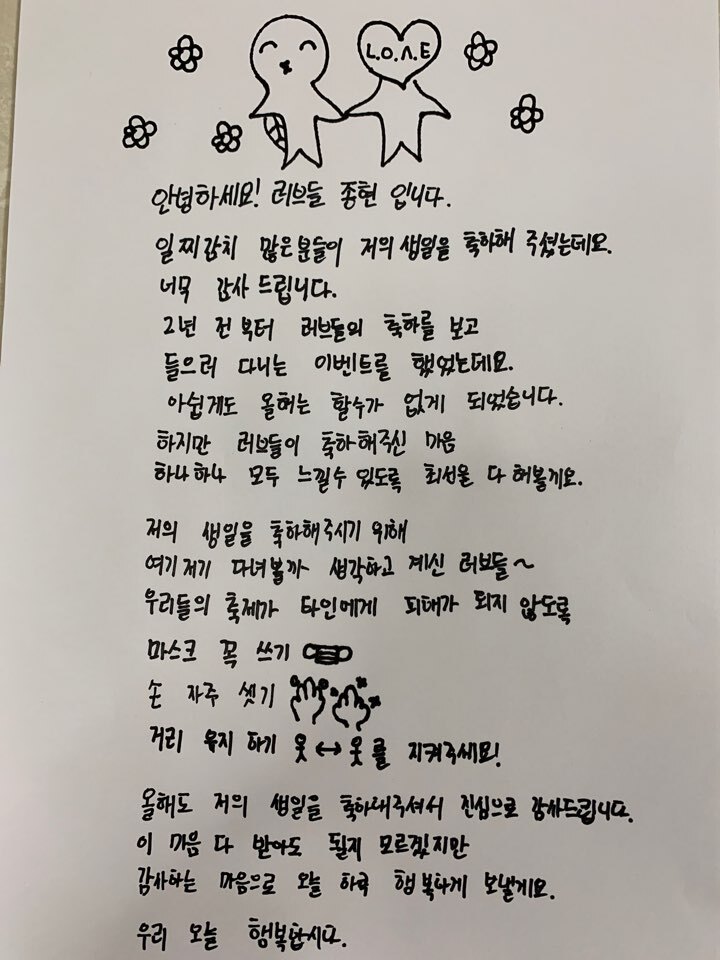 L.O.Λ.E
안녕하세요! 러브들 종현 입니다.
일찌감치 많은분들이 저의 생일을 축하해 주셨는데요.
너무 감사 드립니다.
2년 전 부터 러브들의 축하를 보고
들으러 다니는 이벤트를 했었는데요.
아쉽게도 올해는 할수가 없게 되었습니다.
하지만 러브들이 축하해주신 마음
하나하나 모두 느낄수 있도록 최선을 다 해볼게요.
저의 생일을 축하해주시기 위해
여기저기 다녀볼까 생각하고 계신 러브들~
우리들의 축제가 타인에게 피해가 되지 않도록
마스크 꼭 쓰기
손 자주 씻기
거리 유지 하기 옷 ↔ 옷 를 지켜주세요!
올해도 저의 생일을 축하해주셔서 진심으로 감사드립니다.
이 마음 다 받아도 될지 모르겠지만
감사하는 마음으로 오늘 하루 행복하게 보낼게요.
우리 오늘 행복합시다.